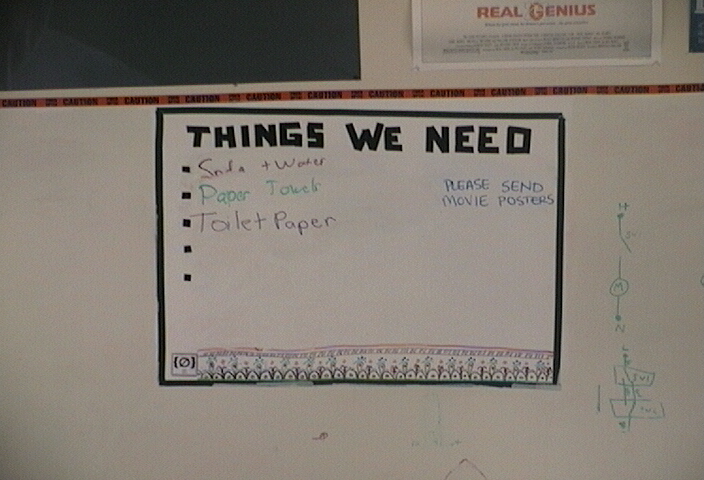 REAL GENIUS
CAUTION CAUTION CAUTION CAUTION CAUTION CAUTION CAUTION CAUTION CAUTION CAUTION CAUTION
THINGS WE NEED
Soda + Water
Paper Towels
Toilet Paper
PLEASE SEND
MOVIE POSTERS
[Ø]
M
N